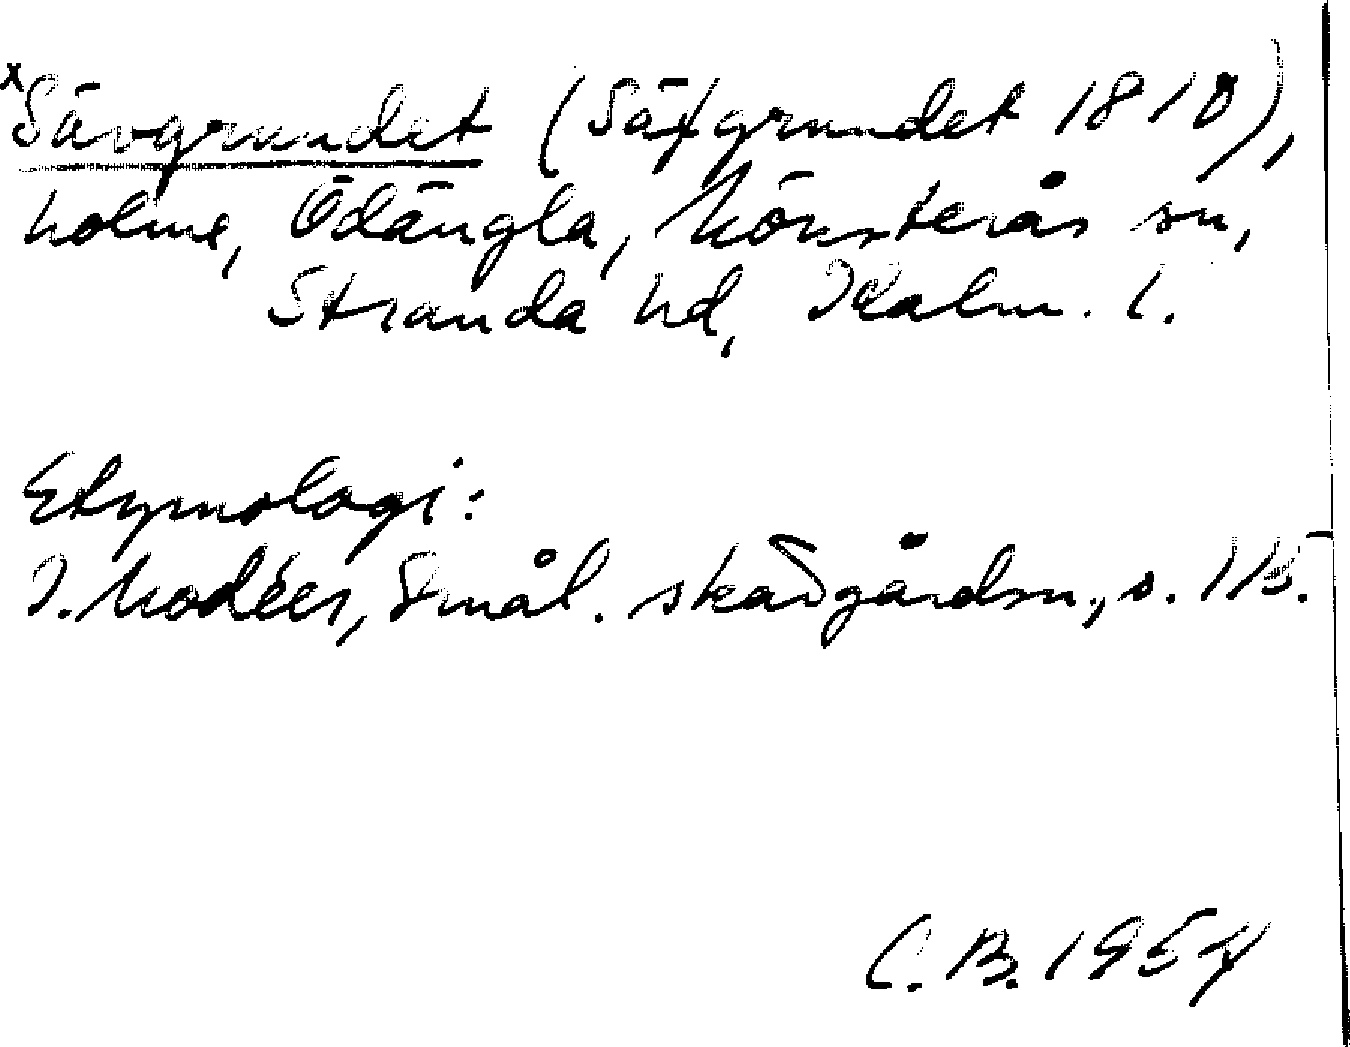 x Sävgrundet (Säfgrundet 1810),
holme, Ödängla, Mönsterås sn,
Stranda hd, Kalm. l.
Etymologi:
I. Modéer, Smål. skärgårdsn., s. 115.
C. B. 1954